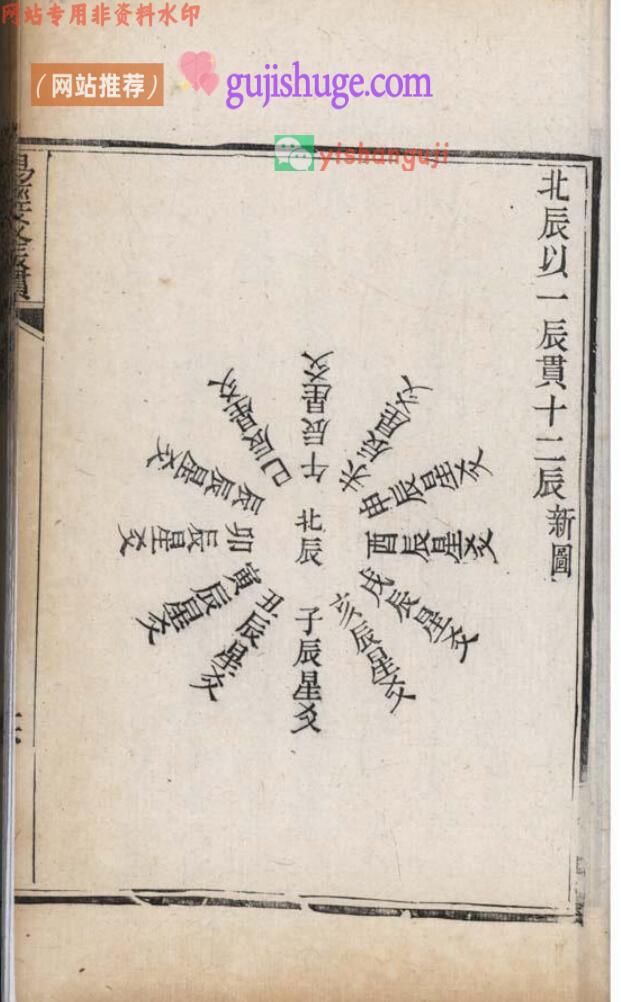 网站专用非资料水印
(网站推荐)
gujishuge.com
yishanguji
北辰以一辰貫十二辰新圖
北辰
子辰星爻
丑辰星爻
寅辰星爻
卯辰星爻
辰辰星爻
巳辰星爻
午辰星爻
未辰星爻
申辰星爻
酉辰星爻
戌辰星爻
亥辰星爻